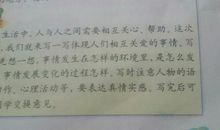 生活中,人与人之间需要相互关心、帮助。这次
,我们就来写一写体现人们相互关爱的事情。写
想一想,事情发生在怎样的环境里,是怎么发
事情发展变化的过程怎样。写时注意人物的语
动作、心理活动等,要表达真情实感。写完后可
同学交换意见。